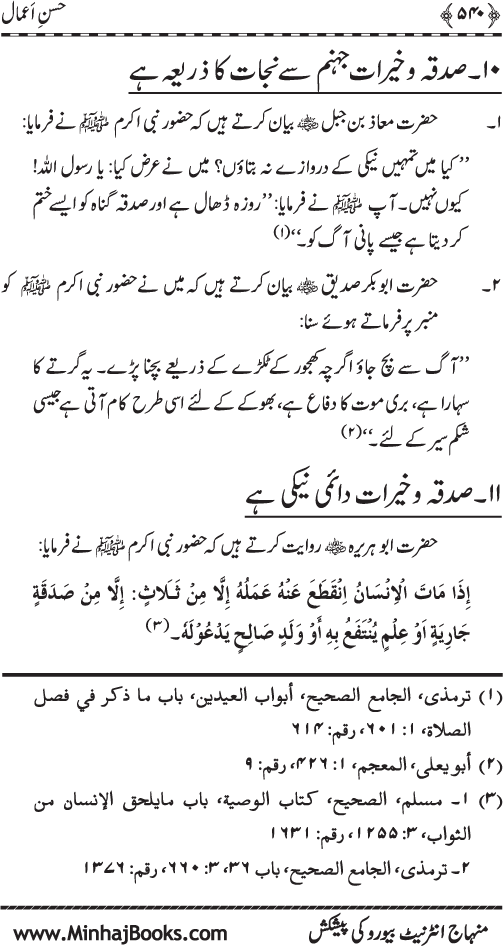 ﴿۵۴۰﴾ حسنِ اَعمال
۱۰۔ صدقہ و خیرات جہنم سے نجات کا ذریعہ ہے
۱۔ حضرت معاذ بن جبل ؓ بیان کرتے ہیں کہ حضور نبی اکرم ﷺ نے فرمایا:
’’کیا میں تمہیں نیکی کے دروازے نہ بتاؤں؟ میں نے عرض کیا: یا رسول اللہ!
کیوں نہیں۔ آپ ﷺ نے فرمایا: ’’روزہ ڈھال ہے اور صدقہ گناہ کو ایسے ختم
کر دیتا ہے جیسے پانی آگ کو۔‘‘(۱)
۲۔ حضرت ابوبکر صدیق ؓ بیان کرتے ہیں کہ میں نے حضور نبی اکرم ﷺ کو
منبر پر فرماتے ہوئے سنا:
’’آگ سے بچ جاؤ اگرچہ کھجور کے ٹکڑے کے ذریعے بچنا پڑے۔ یہ گرتے کا
سہارا ہے، بری موت کا دفاع ہے، بھوکے کے لئے اسی طرح کام آتی ہے جیسی
شکم سیر کے لئے۔‘‘(۲)
۱۱۔ صدقہ و خیرات دائمی نیکی ہے
حضرت ابوہریرہ ؓ روایت کرتے ہیں کہ حضور نبی اکرم ﷺ نے فرمایا:
إِذَا مَاتَ الْإِنْسَانُ اِنْقَطَعَ عَنْهُ عَمَلُهُ إِلَّا مِنْ ثَلَاثٍ: إِلَّا مِنْ صَدَقَةٍ
جَارِيَةٍ اَوْ عِلْمٍ يُنْتَفَعُ بِهِ أَوْ وَلَدٍ صَالِحٍ يَدْعُوْلَهُ۔(۳)
(۱) ترمذی، الجامع الصحیح، أبواب العیدین، باب ما ذکر في فصل
الصلاة، ۱: ۶۰۱، رقم: ۶۱۴
(۲) أبو یعلی، المعجم، ۱: ۴۲۶، رقم: ۹
(۳) ۱۔ مسلم، الصحیح، کتاب الوصیة، باب مایلحق الإنسان من
الثواب، ۳: ۱۲۵۵، رقم: ۱۶۳۱
۲۔ ترمذی، الجامع الصحیح، باب ۳۶، ۳: ۶۶۰، رقم: ۱۳۷۶
منہاج انٹرنیٹ بیورو کی پیشکش www.MinhajBooks.com